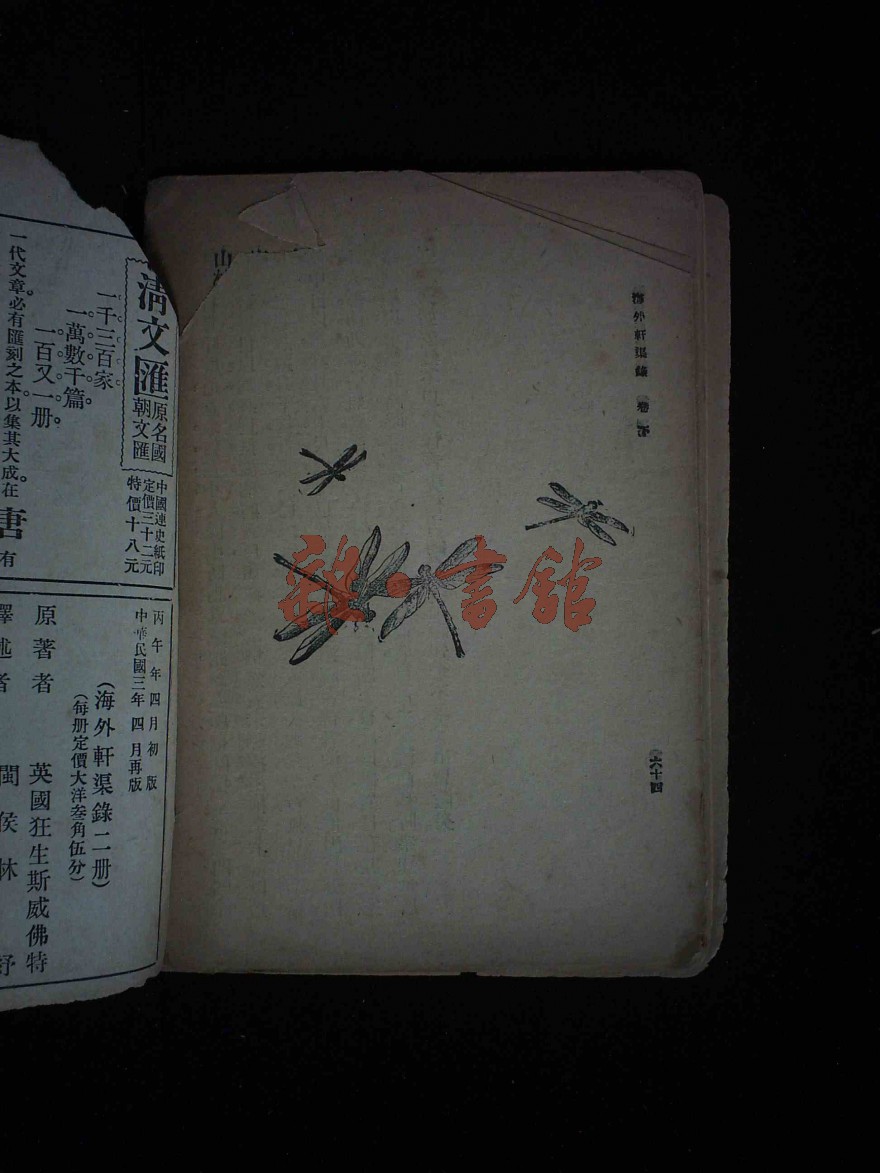 海外軒渠錄
六十四
清文匯
原名國
朝文匯
中國連史紙印
定價三十二元
特價十八元
一千三百家
一萬數千篇。
一百又一册。
一代文章。必有匯刻之本。以集其大成。在
唐
有
丙午年四月初版
中華民國三年四月再版
(海外軒渠錄二册)
(每册定價大洋叁角伍分)
原著者 英國狂生斯威佛特
譯述者 閩侯林紓
雜·書館